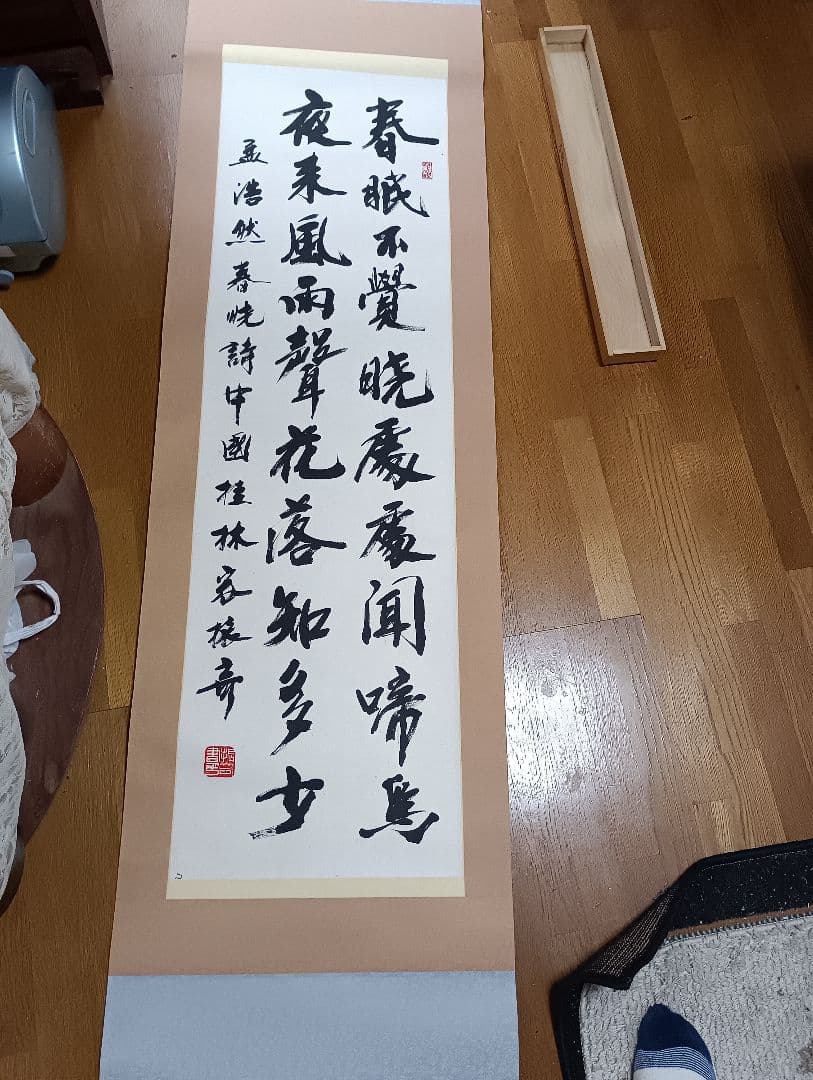 春眠不覺曉處處聞啼鳥
夜来風雨聲花落知多少
孟浩然春曉詩中國桂林家振奇